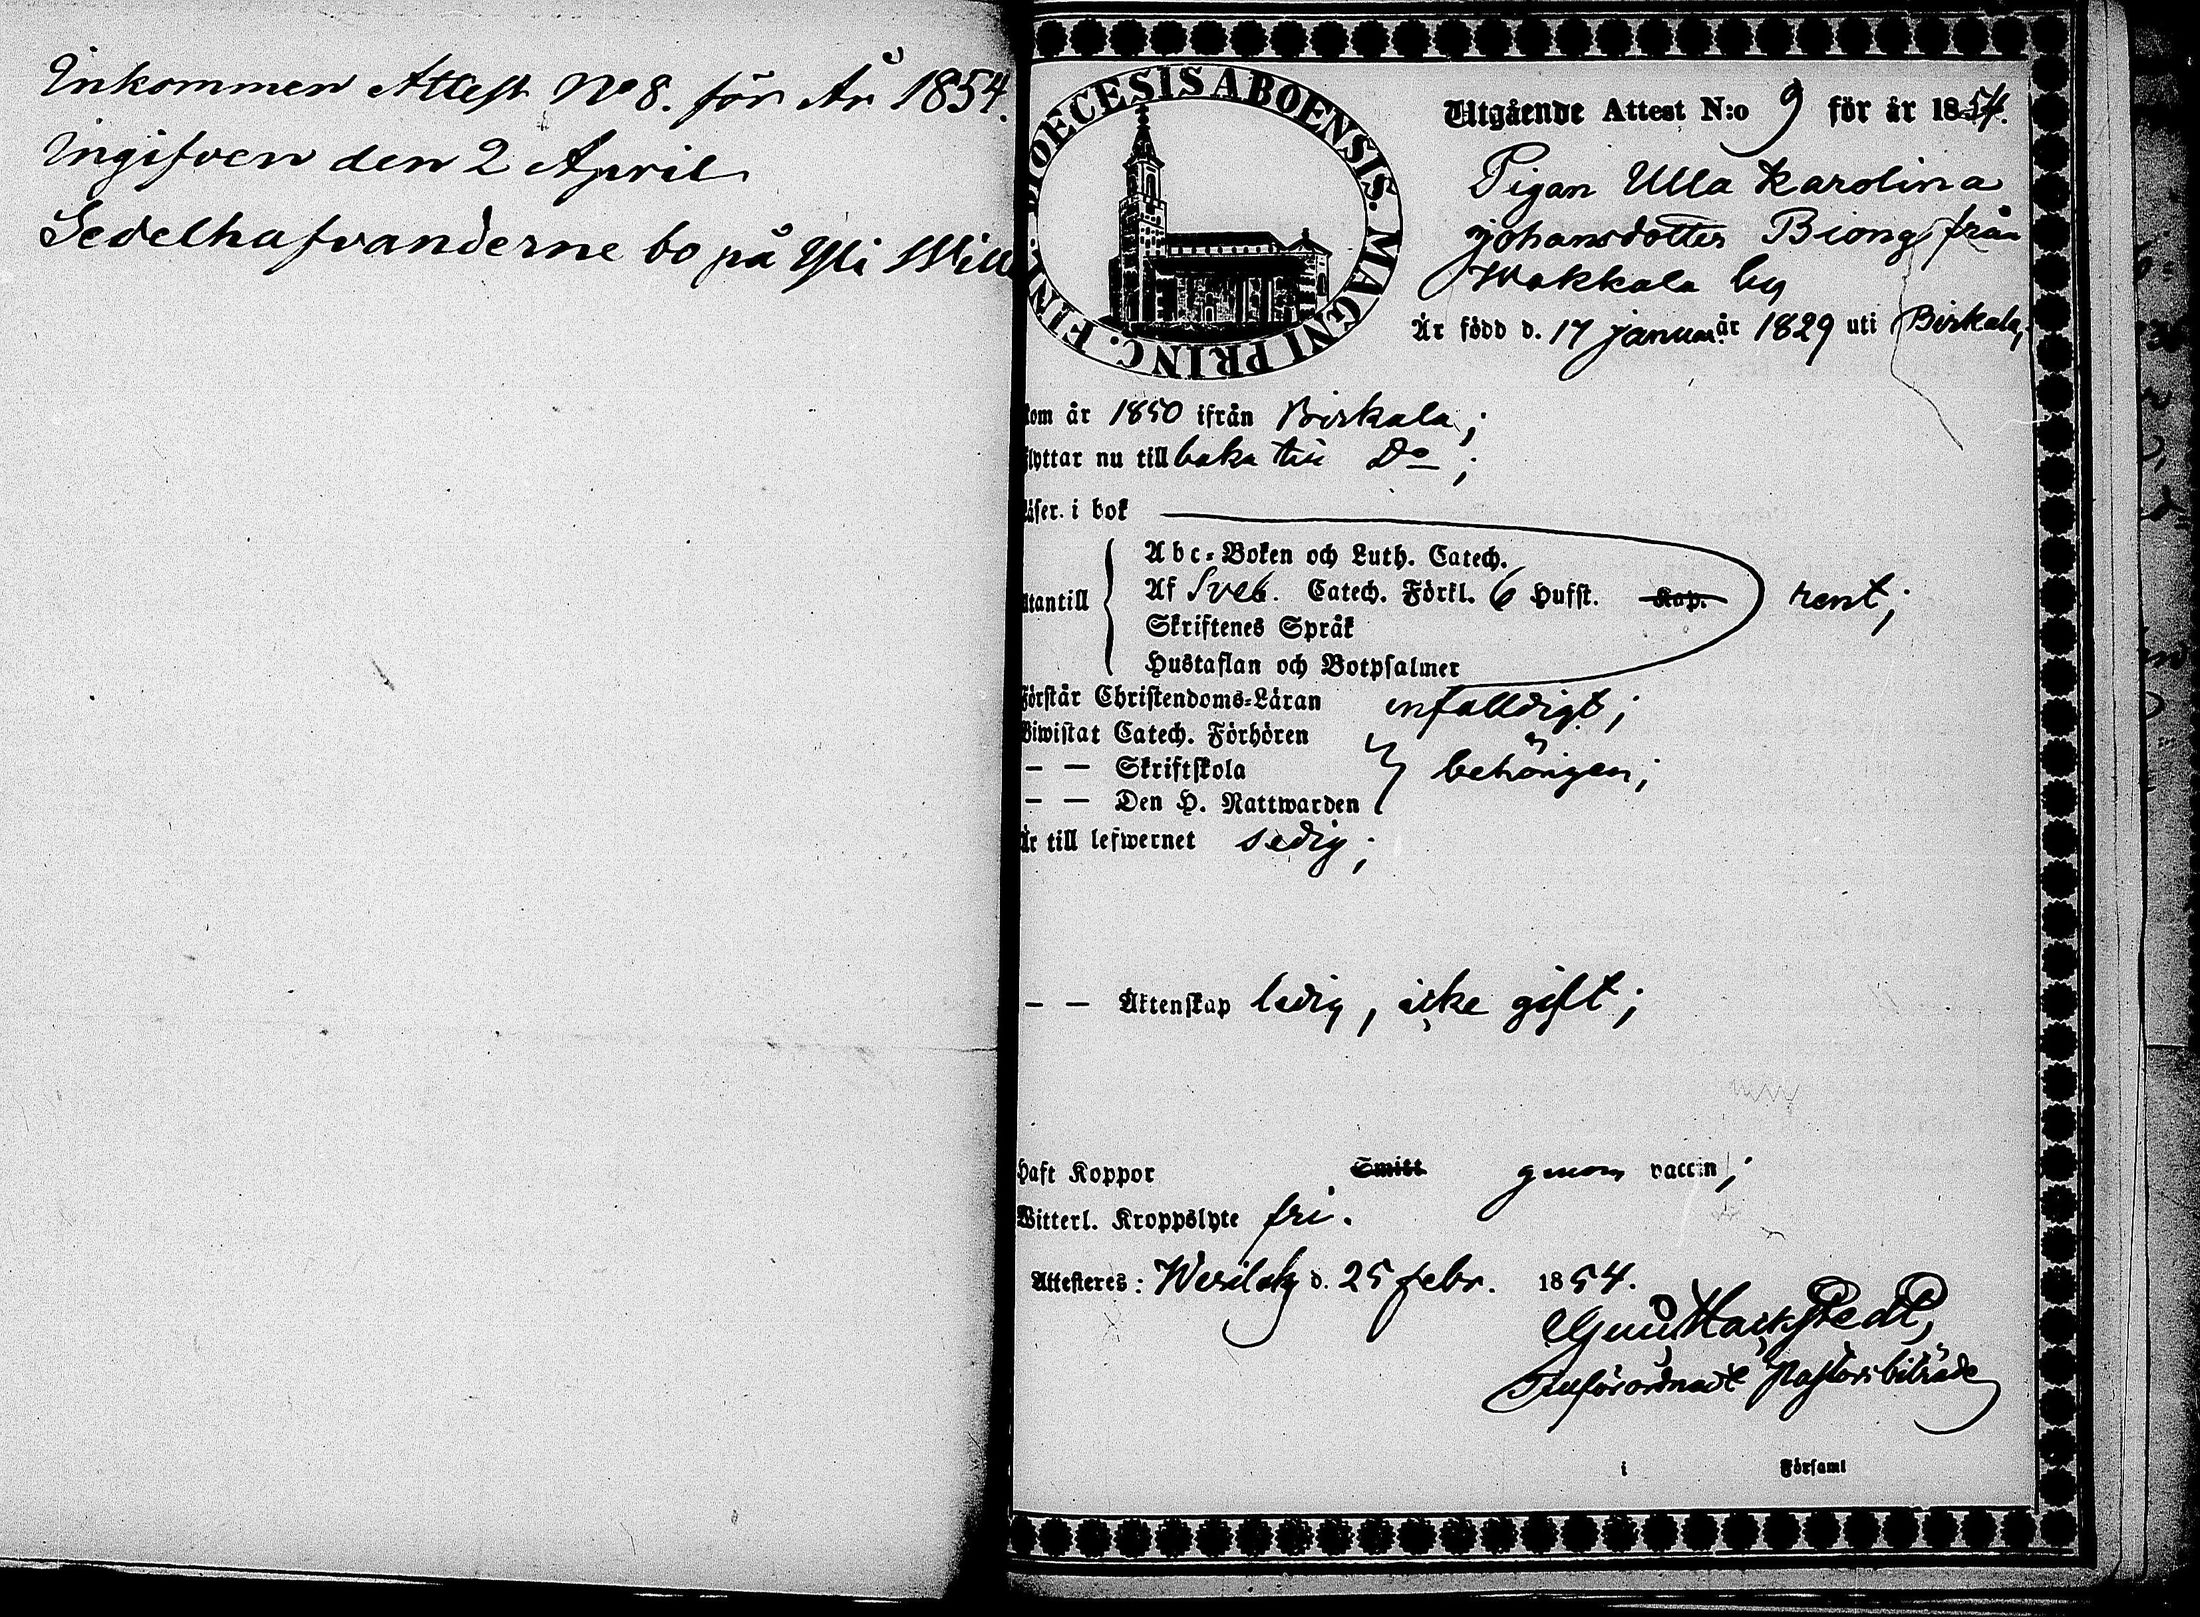 Inkommen Attest No 8. för År 1854.
Ingifven den 2 April
Sedelhafvanderne bo på Yli
DIOECESIS ABOENSIS. MAGNI PRINC. FINL.
Utgående Attest N:o 9 för år 1854.
Pigan Ulla Karolina
Johansdotter Biong från
Wakkala by
Är född d. 17 januar: år 1829 uti Birkala,
kom år 1850 ifrån Birkala;
flyttar nu till baka till Do;
läser i bok
Abc-Boken och Luth. Catech.
utantill Af Sveb. Catech. Förkl. 6 Hufst. Kap. rent;
Skriftenes Språk
Hustaflan och Botpsalmer
Förstår Christendoms-Läran enfalldigt;
Biwistat Catech. Förhören
— — Skriftskola behörigen;
— — Den H. Nattwarden
Är till lefwernet sedig;
— — Äktenskap ledig, icke gift;
Haft Koppor Smitt genom vaccin;
Witterl. Kroppslyte fri.
Attesteres: Wesilaks d. 25 febr. 1854.
Hackstedt,
Tillförordnadt Pastorsbiträde
i Församl